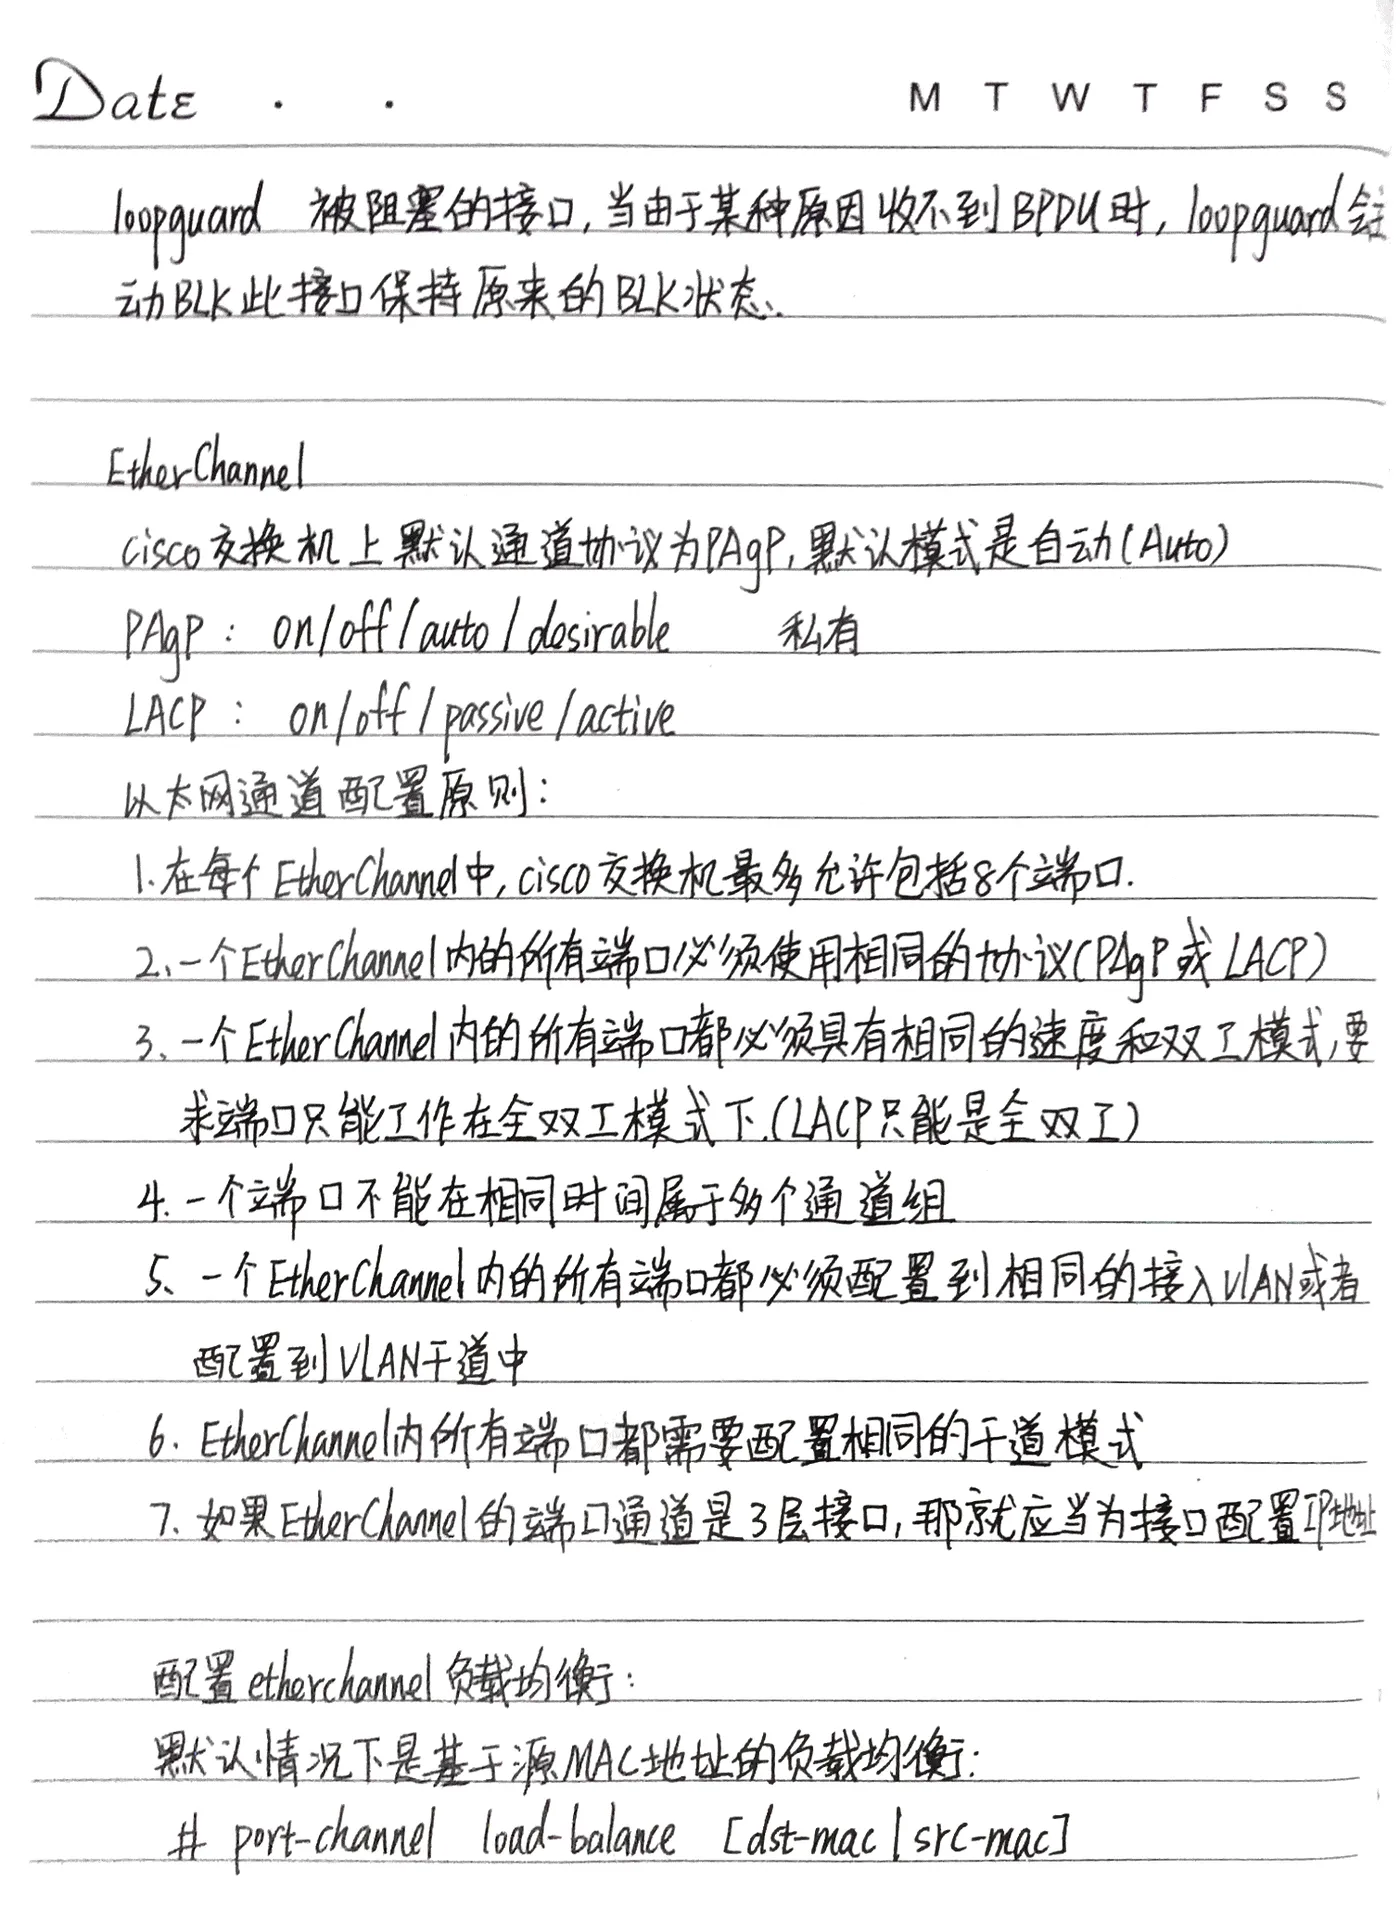 Date . . M T W T F S S
loopguard 被阻塞的接口,当由于某种原因收不到BPDU时,loopguard会主
动BLK此接口保持原来的BLK状态.
EtherChannel
cisco交换机上默认通道协议为PAgP,默认模式是自动(Auto)
PAgP: on/off/auto/desirable 私有
LACP: on/off/passive/active
以太网通道配置原则:
1.在每个EtherChannel中,cisco交换机最多允许包括8个端口.
2、一个EtherChannel内的所有端口必须使用相同的协议(PAgP或LACP)
3、一个EtherChannel内的所有端口都必须具有相同的速度和双工模式,要
求端口只能工作在全双工模式下.(LACP只能是全双工)
4.一个端口不能在相同时间属于多个通道组
5、一个EtherChannel内的所有端口都必须配置到相同的接入VLAN或者
配置到VLAN干道中
6. EtherChannel内所有端口都需要配置相同的干道模式
7.如果EtherChannel的端口通道是3层接口,那就应当为接口配置IP地址
配置etherchannel负载均衡:
默认情况下是基于源MAC地址的负载均衡:
# port-channel load-balance [dst-mac|src-mac]